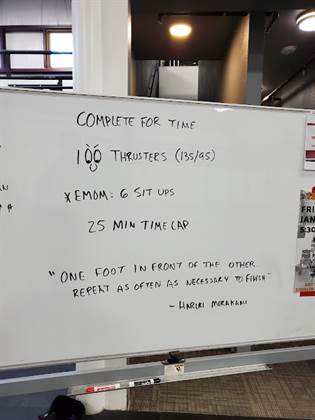 COMPLETE FOR TIME
100 THRUSTERS (135/95)
*EMOM: 6 SIT UPS
25 MIN TIME CAP
"ONE FOOT IN FRONT OF THE OTHER.
REPEAT AS OFTEN AS NECESSARY TO FINISH"
- HARUKI MURAKAMI
FRI
JAN
5:30